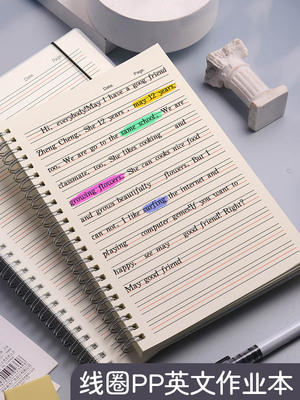 Date Page
Date Page
Hi, everybody!May I have a goog friend
Zheng Cheng. She 12 years , may 12 years.
too. We are go to the same school. We are
classmate, too. She likes cooking and
crossing flowers. She can cooks nice food
and grous beautifully flowers. But I
can not. I like surfing the internet and
playing computer games!If you want to
happy, see may good friend! Right?
May good friend
线圈PP英文作业本